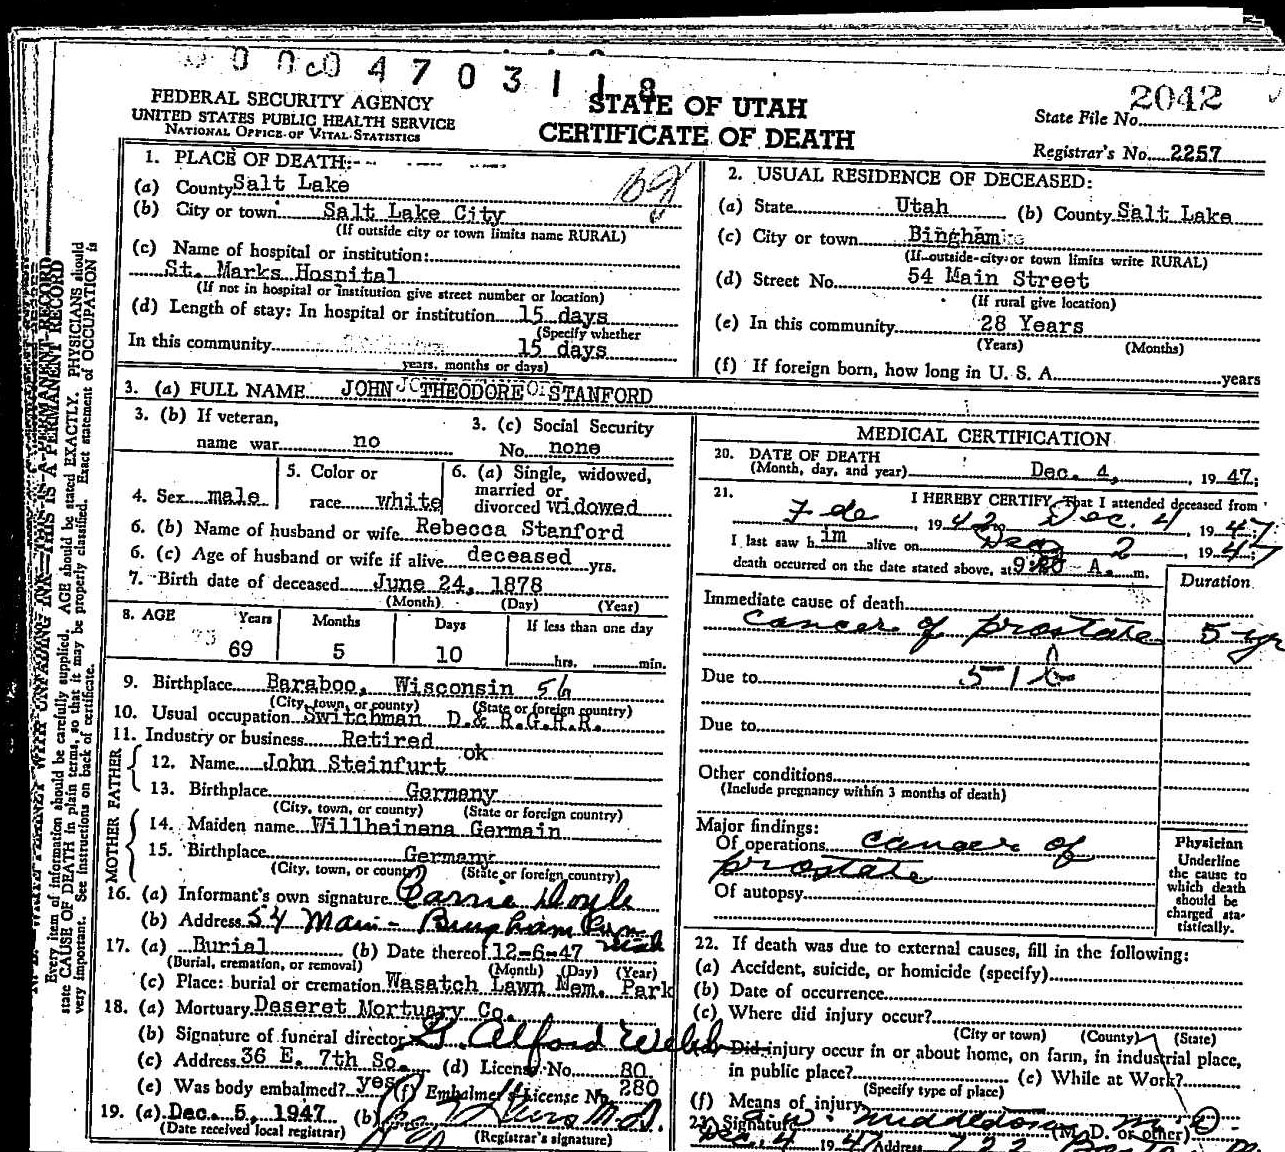 0 0 0 4 7 0 3 1 1 8
FEDERAL SECURITY AGENCY
UNITED STATES PUBLIC HEALTH SERVICE
NATIONAL OFFICE OF VITAL STATISTICS
STATE OF UTAH
CERTIFICATE OF DEATH
State File No. 2042
Registrar's No. 2257
N. B.—WRITE PLAINLY WITH UNFADING INK—THIS IS A PERMANENT RECORD
Every item of information should be carefully supplied. AGE should be stated EXACTLY. PHYSICIANS should
state CAUSE OF DEATH in plain terms, so that it may be properly classified. Exact statement of OCCUPATION is
very important. See instructions on back of certificate.
1. PLACE OF DEATH:
(a) County Salt Lake
(b) City or town Salt Lake City
(If outside city or town limits name RURAL)
(c) Name of hospital or institution:
St. Marks Hospital
(If not in hospital or institution give street number or location)
(d) Length of stay: In hospital or institution 15 days
(Specify whether
In this community 15 days
years, months or days)
2. USUAL RESIDENCE OF DECEASED:
(a) State Utah (b) County Salt Lake
(c) City or town Bingham
(If outside city or town limits write RURAL)
(d) Street No. 54 Main Street
(If rural give location)
(e) In this community 28 Years
(Years) (Months)
(f) If foreign born, how long in U. S. A. years
3. (a) FULL NAME JOHN THEODORE STANFORD
3. (b) If veteran,
name war no
3. (c) Social Security
No. none
4. Sex male
5. Color or
race white
6. (a) Single, widowed,
married or
divorced Widowed
6. (b) Name of husband or wife Rebecca Stanford
6. (c) Age of husband or wife if alive deceased yrs.
7. Birth date of deceased June 24, 1878
(Month) (Day) (Year)
8. AGE Years Months Days If less than one day
69 5 10 hrs. min.
9. Birthplace Baraboo, Wisconsin 56
(City, town, or county) (State or foreign country)
10. Usual occupation Switchman D.& R.G.R.R.
11. Industry or business Retired
FATHER
12. Name John Steinfurt ok
13. Birthplace Germany
(City, town, or county) (State or foreign country)
MOTHER
14. Maiden name Willheinena Germain
15. Birthplace Germany
(City, town, or county) (State or foreign country)
16. (a) Informant's own signature Carrie Doyle
(b) Address 54 Main - Bingham Can Utah
17. (a) Burial (b) Date thereof 12-6-47
(Burial, cremation, or removal) (Month) (Day) (Year)
(c) Place: burial or cremation Wasatch Lawn Mem. Park
18. (a) Mortuary Deseret Mortuary Co.
(b) Signature of funeral director G. Alford Webb
(c) Address 36 E. 7th So. (d) License No. 80
(e) Was body embalmed? yes (f) Embalmer's License No. 280
19. (a) Dec. 5, 1947 (b) M.D.
(Date received local registrar) (Registrar's signature)
MEDICAL CERTIFICATION
20. DATE OF DEATH
(Month, day, and year) Dec. 4, , 19 47;
21. I HEREBY CERTIFY, That I attended deceased from
, 19 42 Dec. 4 , 19 47
I last saw h im alive on Dec 2 , 19 47
death occurred on the date stated above, at 9:20 A. m.
Duration
Immediate cause of death
cancer of prostate 5 yr
Due to 51 b
Due to
Other conditions
(Include pregnancy within 3 months of death)
Major findings:
Of operations cancer of
prostate
Of autopsy
Physician
Underline
the cause to
which death
should be
charged sta-
tistically.
22. If death was due to external causes, fill in the following:
(a) Accident, suicide, or homicide (specify)
(b) Date of occurrence
(c) Where did injury occur?
(City or town) (County) (State)
(d) Did injury occur in or about home, on farm, in industrial place,
in public place? (e) While at Work?
(Specify type of place)
(f) Means of injury
23. Signature Middleton (M. D. or other)
Dec. 4 19 47 Address